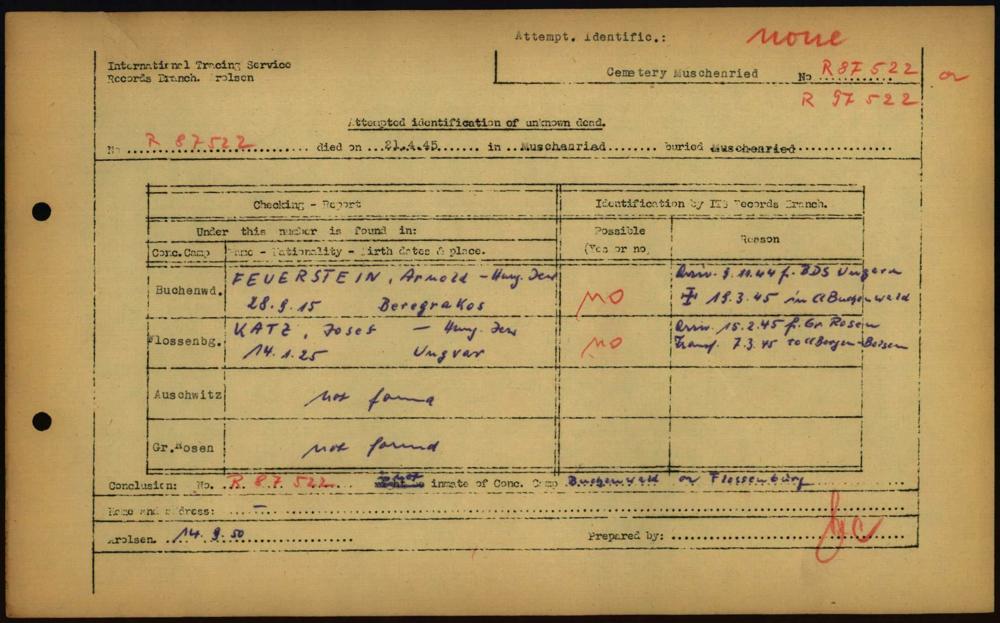 Attempt. Identific.: none
International Tracing Service
Records Branch. Arolsen
Cemetery Muschenried No R 87 522 or
R 97 522
Attempted identification of unknown dead.
No R 87522 died on 21.4.45 in Muschenried buried Muschenried
Checking - Report Identification by ITS Records Branch.
Under this number is found in: Possible (Yes or no) Reason
Conc.Camp Name - Nationality - Birth dates & place.
Buchenwd. FEUERSTEIN, Arnold - Hung. Jew no Arriv. 9.11.44 f. BDS Ungarn
28.9.15 Beregrakos 19.3.45 in Cl Buchenwald
Flossenbg. KATZ, Josef - Hung. Jew no Arriv. 15.2.45 f. Gr. Rosen
14.1.25 Ungvar Transf. 7.3.45 to Cl Bergen-Belsen
Auschwitz not found
Gr.Rosen not found
Conclusion: No. R 87 522 inmate of Conc. Camp Buchenwald or Flossenbürg
Name and address: -
Arolsen. 14.9.50 Prepared by: